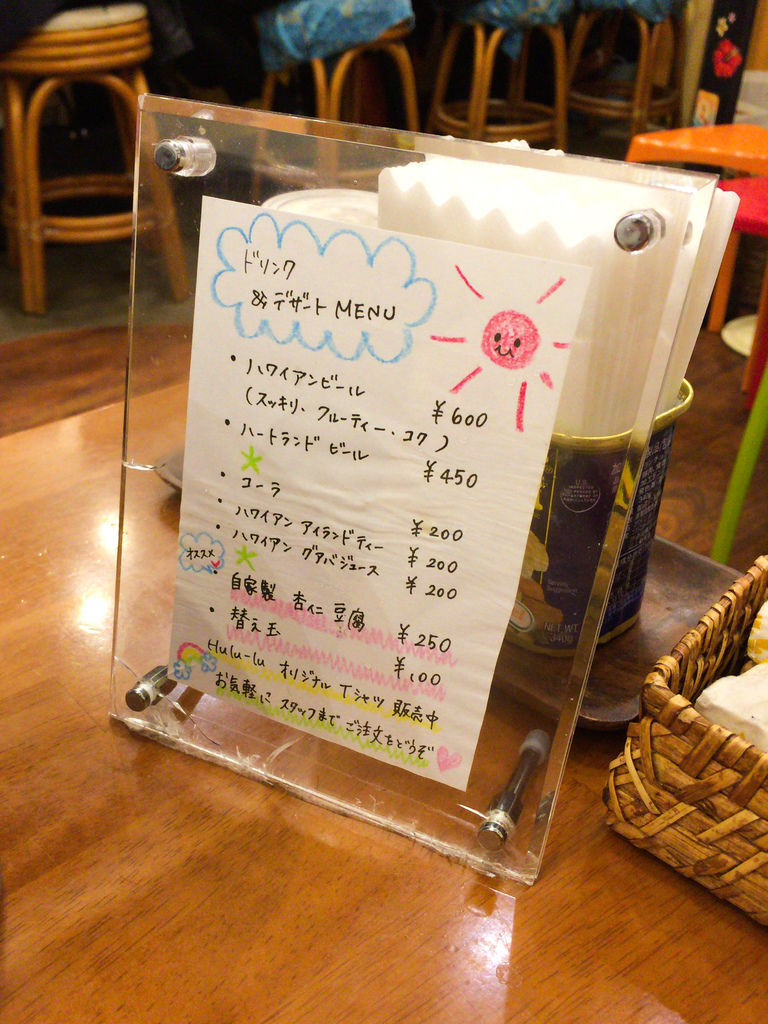 ドリンク
& デザート MENU
・ハワイアンビール ¥600
(スッキリ、フルーティー・コク)
・ハートランド ビール ¥450
・コーラ ¥200
・ハワイアン アイランドティー ¥200
・ハワイアン グアバジュース ¥200
オススメ
・自家製 杏仁 豆腐 ¥250
・替え玉 ¥100
Hulu-lu オリジナル Tシャツ 販売中
お気軽に スタッフまで ご注文をどうぞ
NET WT.
340g